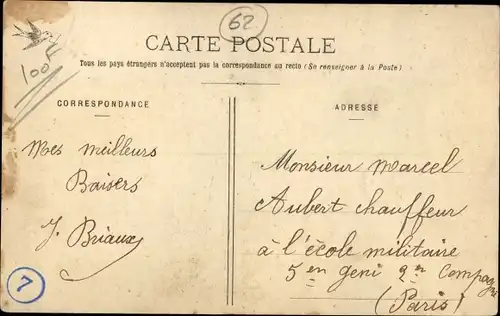 62
100
CARTE POSTALE
Tous les pays étrangers n'acceptent pas la correspondance au recto (Se renseigner à la Poste)
CORRESPONDANCE
Mes meilleurs
Baisers
J. Briaux
7
ADRESSE
Monsieur Marcel
Aubert chauffeur
à l'école militaire
5 en geni 2en Compagni
(Paris)